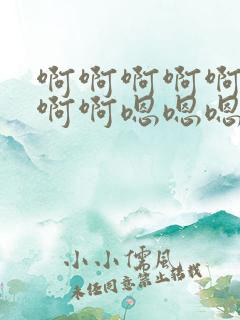 啊啊啊啊啊
啊啊嗯嗯嗯
小小儒风
未经同意禁止转载